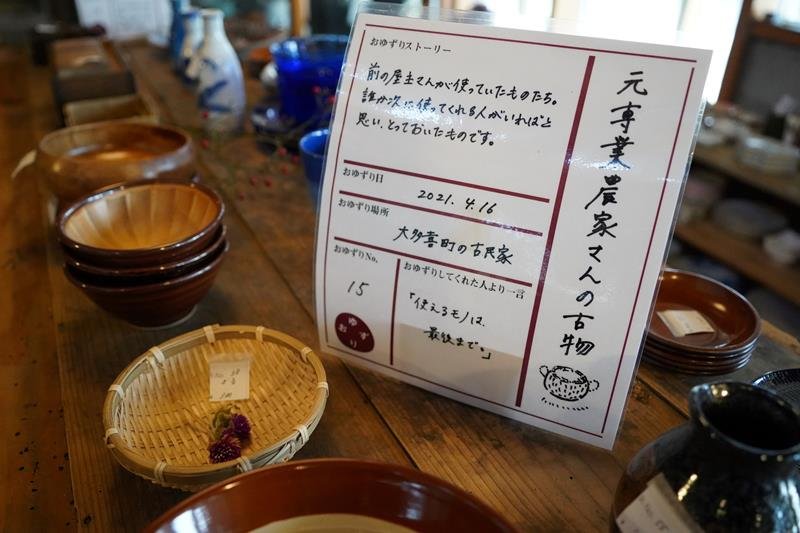 元専業農家さんの古物
おゆずりストーリー
前の屋主さんが使っていたものたち。
誰か次に使ってくれる人がいればと
思い、とっておいたものです。
おゆずり日
2021. 4. 16
おゆずり場所
大多喜町の古民家
おゆずりNo.
15
おゆずりしてくれた人より一言
「使えるモノは、
最後まで。」
ゆずり
お